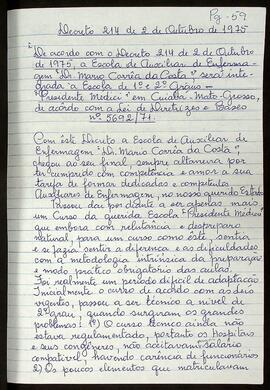 Pg - 59
Decreto 214 de 2 de Outubro de 1975
"De acordo com o Decreto 214 de 2 de Outubro
de 1975, a Escola de Auxiliar de Enferma-
gem "Dr. Mario Corrêa da Costa", será inte-
grada a Escola de 1º e 2º Gráus -
Presidente Medici" em Cuiabá - Mato-Grosso,
de acordo com a Lei de Diretrizes e Bases
nº 5692/71.
Com êste Decreto a Escola de Auxiliar de
Enfermagem "Dr. Mario Corrêa da Costa"
chegou ao seu final, sempre altaneira por
ter cumprido com competência e amor a sua
tarefa de formar dedicados e competentes
Auxiliares de Enfermagem, no nosso querido Estado.
Passou daí por diante a ser apenas mais
um Curso da querida Escola "Presidente Medici"
que embora com relutância e despreparo
natural, para um curso como êste, sentia
e se fazia sentir a diferença e as dificuldades
com a metodologia intrínsica da preparação
e modo prático obrigatório das aulas.
Foi realmente um período difícil de adaptação
Inicialmente o curso de acordo com as leis
vigentes, passou a ser técnico a nível de
2º grau, quando surgiram os grandes
problemas: 1º) O curso técnico ainda não
estava regulamentado, portanto os Hospitais
e seus congêneres, não aceitavam salário
compatível e havendo carência de funcionários
2) Os poucos elementos que matriculavam